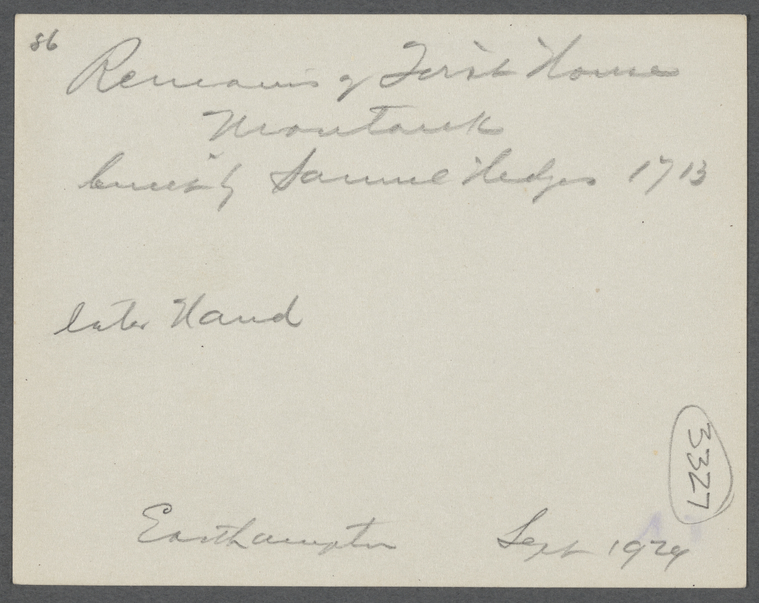 86
Remains of First House
Montauk
built by Samuel Hedges 1713
later Hand
3327
Easthampton Sept 1924